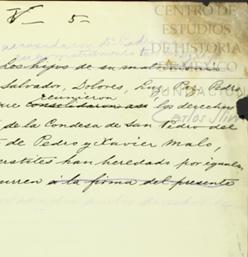 V 5-
CENTRO DE
ESTUDIOS
DE HISTORIA
DE MÉXICO
Los hijos de su matrimonio
Salvador, Dolores, Luz, Paz, Pedro
FUNDACIÓN
Carlos Slim
que consolidaron así los derechos
de la Condesa de San Pedro del
de Pedro y Xavier Malo,
han heredado por iguales
curren a la firma del presente